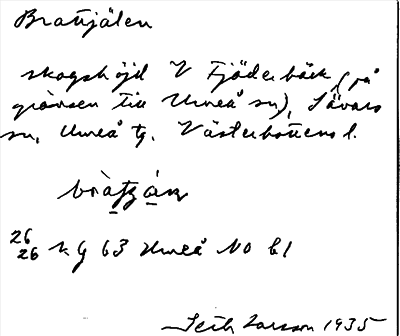 Brattjälen
skogshöjd V Fjöderbäck (på
gränsen till Umeå sn), Sävars
sn, Umeå tg. Västerbottens l.
26
26 kg 63 Umeå NO bl
Seth Larsson 1935